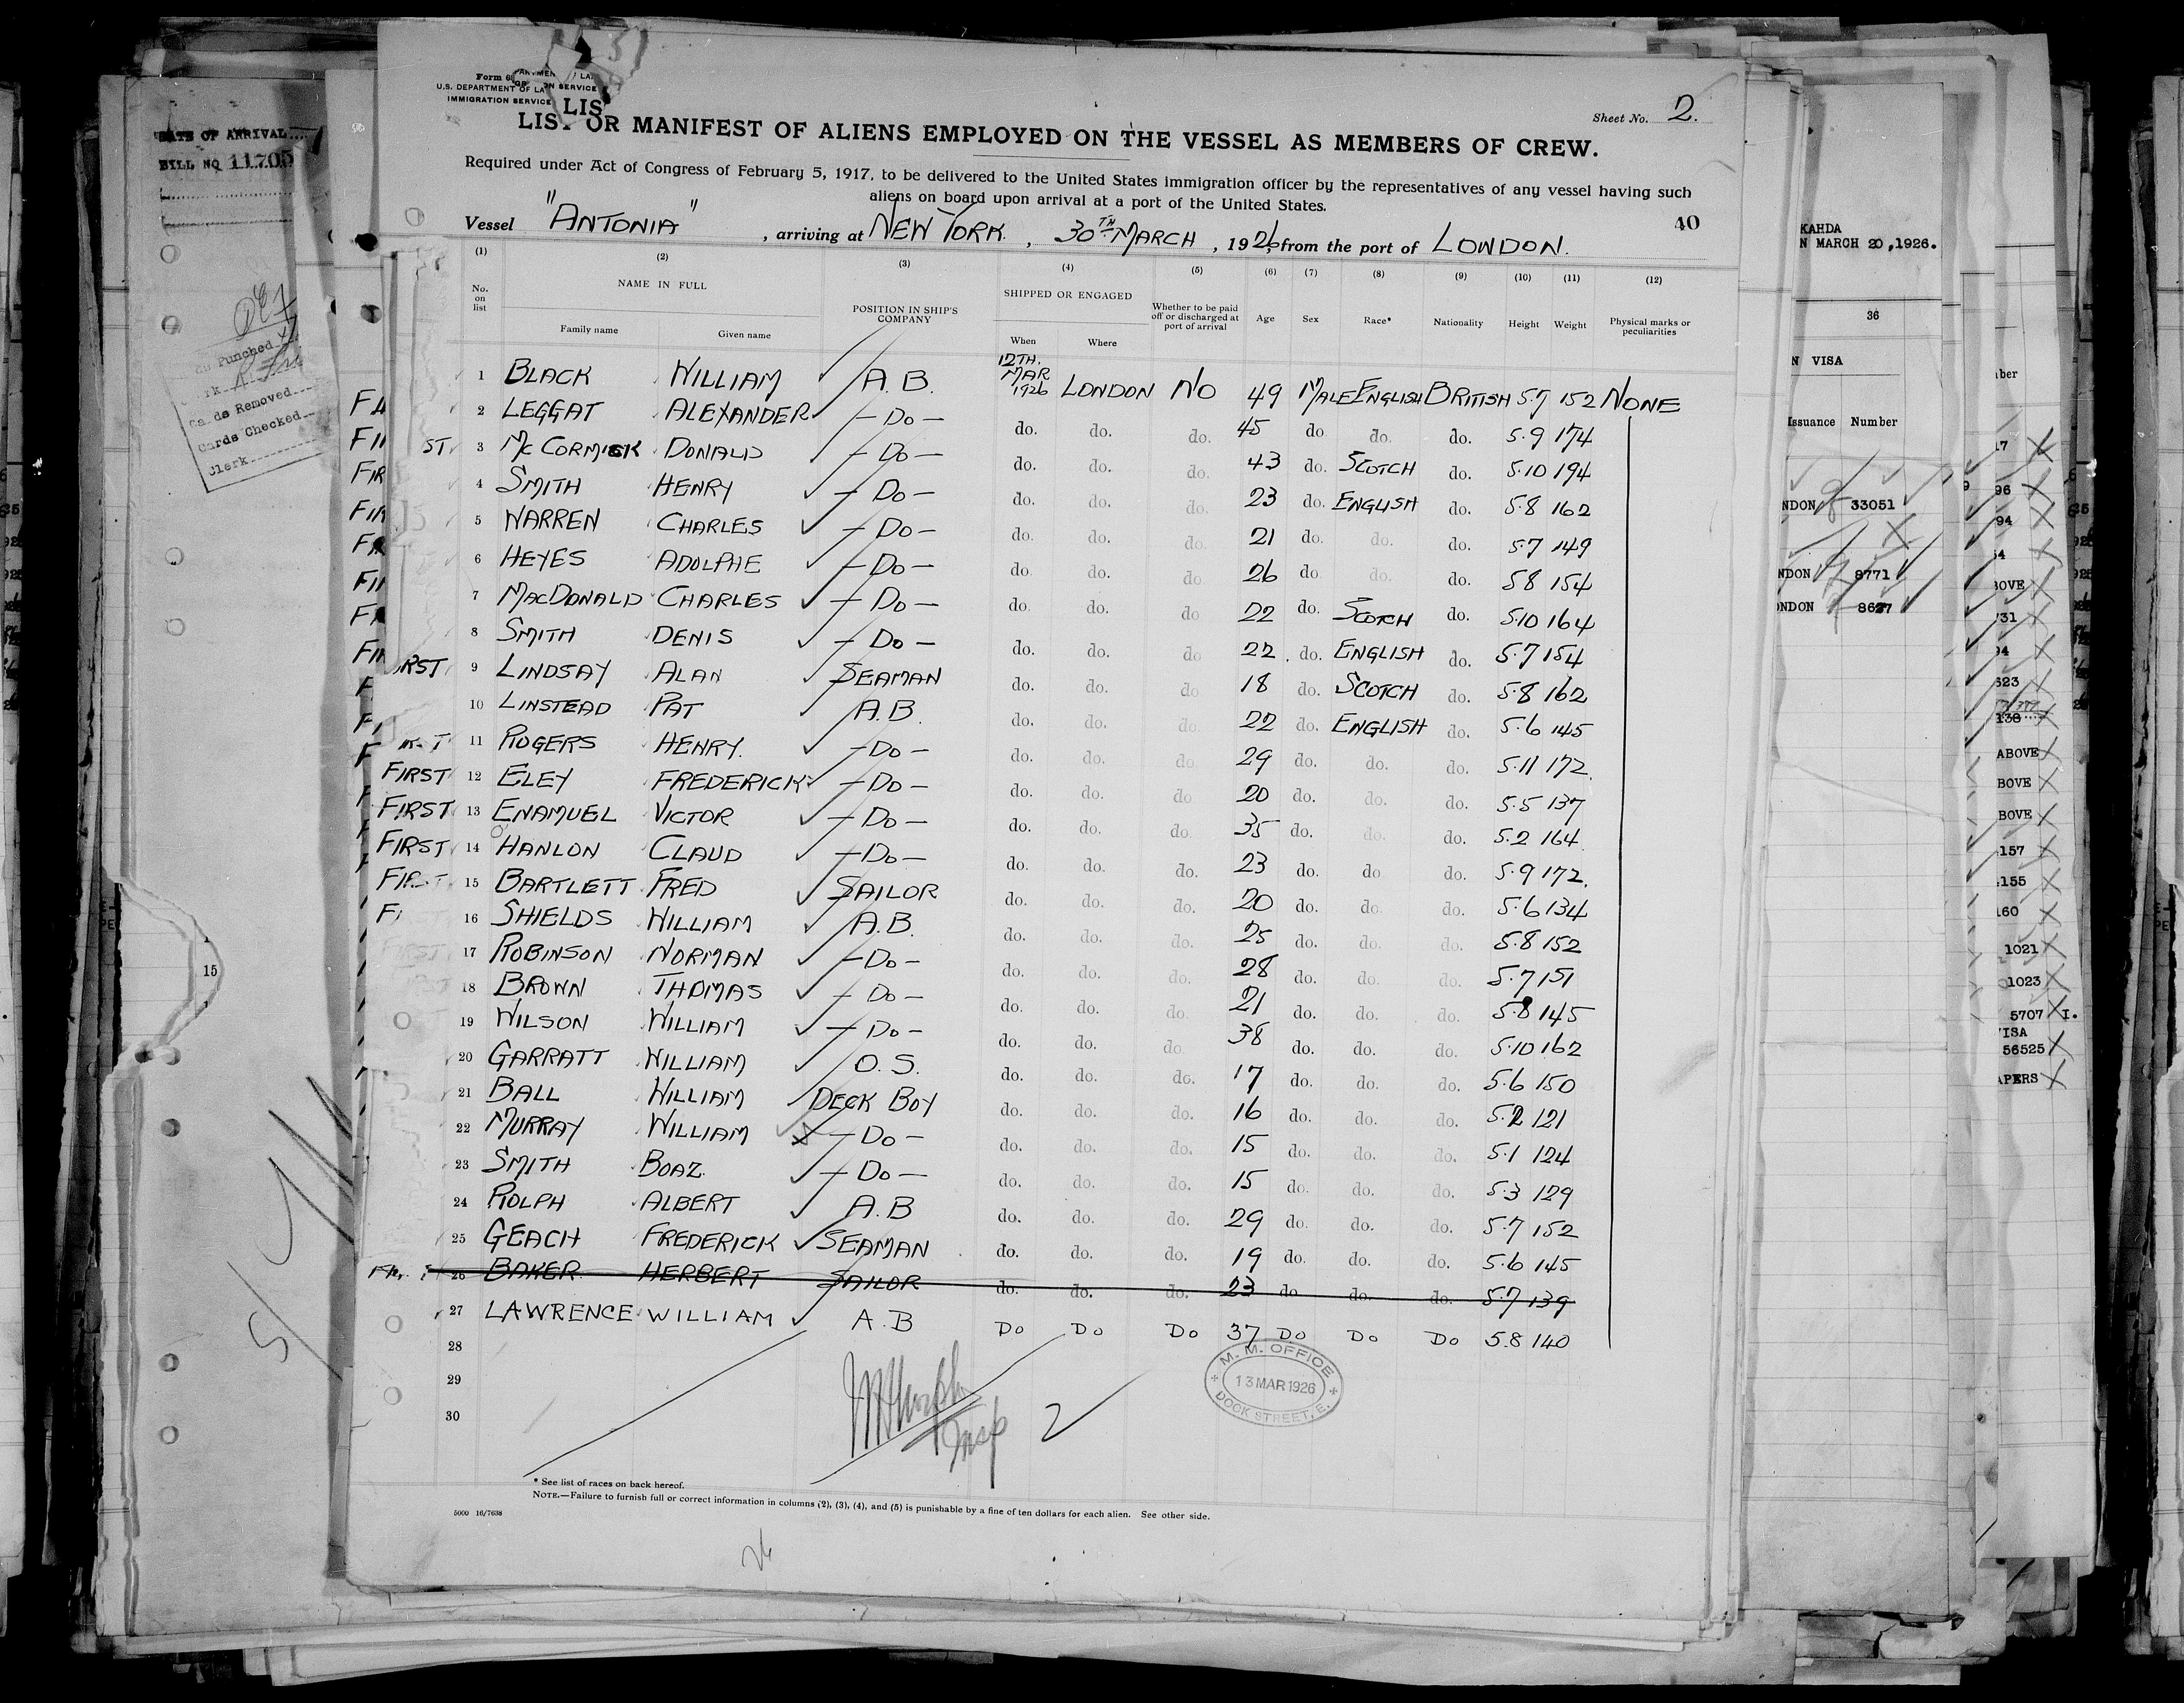 Sheet No. 2.
U.S. DEPARTMENT OF LA
IMMIGRATION SERVICE
LIST OR MANIFEST OF ALIENS EMPLOYED ON THE VESSEL AS MEMBERS OF CREW.
Required under Act of Congress of February 5, 1917, to be delivered to the United States immigration officer by the representatives of any vessel having such
aliens on board upon arrival at a port of the United States.
40
Vessel "ANTONIA", arriving at NEW YORK, 30TH MARCH, 1926, from the port of LONDON.
(1) (2) (3) (4) (5) (6) (7) (8) (9) (10) (11) (12)
No. on list NAME IN FULL Family name Given name POSITION IN SHIP'S COMPANY SHIPPED OR ENGAGED When Where Whether to be paid off or discharged at port of arrival Age Sex Race* Nationality Height Weight Physical marks or peculiarities
1 BLACK WILLIAM A.B. 12TH. MAR 1926 LONDON NO 49 MALE ENGLISH BRITISH 5.7 152 NONE
2 LEGGAT ALEXANDER -DO- do. do. do. 45 do. do. do. 5.9 174
ST 3 McCORMICK DONALD -DO- do. do. do. 43 do. SCOTCH do. 5.10 194
4 SMITH HENRY -DO- do. do. do. 23 do. ENGLISH do. 5.8 162
5 WARREN CHARLES -DO- do. do. do. 21 do. do. do. 5.7 149
6 HEYES ADOLPHE -DO- do. do. do 26 do do. do. 5.8 154
7 MACDONALD CHARLES -DO- do. do. do 22 do. SCOTCH do. 5.10 164
8 SMITH DENIS -DO- do. do. do 22 do. ENGLISH do. 5.7 154
RST 9 LINDSAY ALAN SEAMAN do. do. do 18 do. SCOTCH do. 5.8 162
10 LINSTEAD PAT A.B. do. do. do. 22 do. ENGLISH do. 5.6 145
11 ROGERS HENRY. -DO- do. do. do. 29 do. do. do. 5.11 172.
FIRST 12 ELEY FREDERICK -DO- do. do. do 20 do. do. do. 5.5 137
FIRST 13 ENAMUEL VICTOR -DO- do. do. do. 35 do. do. do. 5.2 164.
FIRST 14 HANLON CLAUD -DO- do. do. do. 23 do. do do. 5.9 172.
FIRST 15 BARTLETT FRED SAILOR do. do. do. 20 do. do. do. 5.6 134
16 SHIELDS WILLIAM A.B. do. do. do. 25 do. do. do. 5.8 152
FIRST 17 ROBINSON NORMAN -DO- do. do. do. 28 do. do. do. 5.7 151
18 BROWN THOMAS -DO- do. do. do. 21 do. do. do. 5.8 145
19 WILSON WILLIAM -DO- do. do. do. 38 do. do. do. 5.10 162
20 GARRATT WILLIAM O.S. do. do. do. 17 do. do. do. 5.6 150
21 BALL WILLIAM DECK BOY do. do. do. 16 do. do. do. 5.2 121
22 MURRAY WILLIAM -DO- do. do. do. 15 do. do. do. 5.1 124
23 SMITH BOAZ. -DO- do. do. do. 15 do. do. do. 5.3 129
24 ROLPH ALBERT A.B do. do. do. 29 do. do. do. 5.7 152
25 GEACH FREDERICK SEAMAN do. do. do. 19 do. do. do. 5.6 145
26 BAKER HERBERT SAILOR do. do. do. 23 do do. do. 5.7 139
27 LAWRENCE WILLIAM A.B DO DO DO 37 DO DO DO 5.8 140
28
29
30
2
M. M. OFFICE
13 MAR 1926
DOCK STREET, E.
* See list of races on back hereof.
NOTE.—Failure to furnish full or correct information in columns (2), (3), (4), and (5) is punishable by a fine of ten dollars for each alien. See other side.
5000 16/7638
DATE OF ARRIVAL
BILL NO 11705
Punched
Cards Removed
Cards Checked
Clerk
15
KAHDA
N MARCH 20, 1926.
36
N VISA
Issuance Number
NDON 33051
NDON 8771
ONDON 8627
ABOVE
BOVE
BOVE
157
155
160
1021
1023
5707 I.
56525